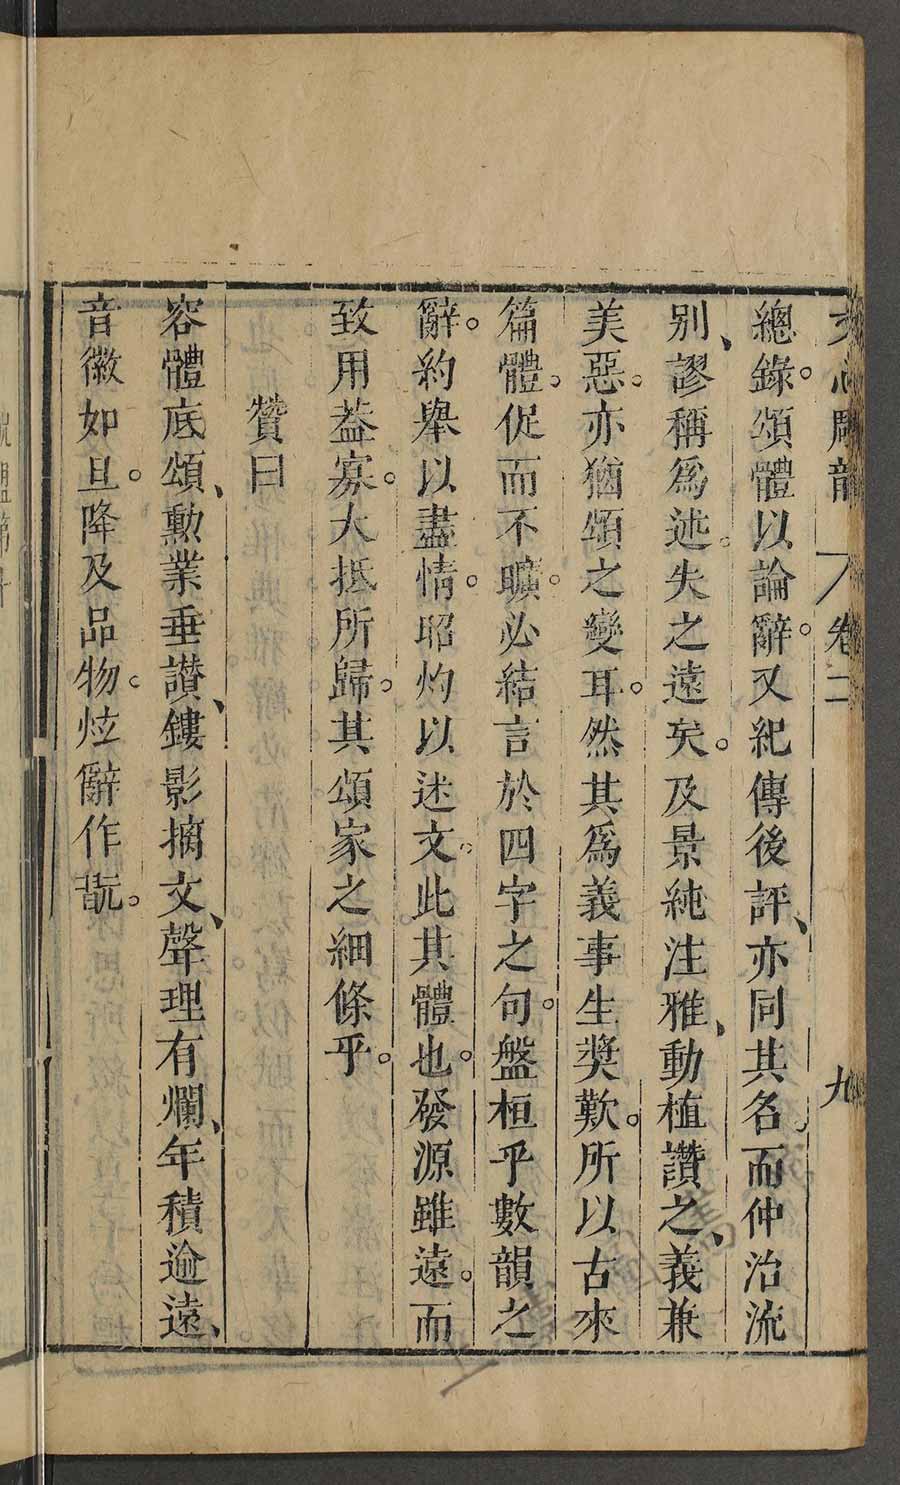 文心雕龍 卷二 九
總錄。頌體以論辭。又紀傳後評、亦同其名。而仲治流
别、謬稱爲述。失之遠矣。及景純注雅、動植讚之、義兼
美惡。亦猶頌之變耳。然其爲義事生奬歎。所以古來
篇體。促而不曠。必結言於四字之句。盤桓乎數韻之
辭。約舉以盡情。昭灼以述文。此其體也。發源雖遠。而
致用葢寡。大抵所歸。其頌家之細條乎。
贊曰
容體底頌、勳業垂讃、鏤影摛文、聲理有爛、年積逾遠、
音徽如旦。降及品物。炫辭作翫。